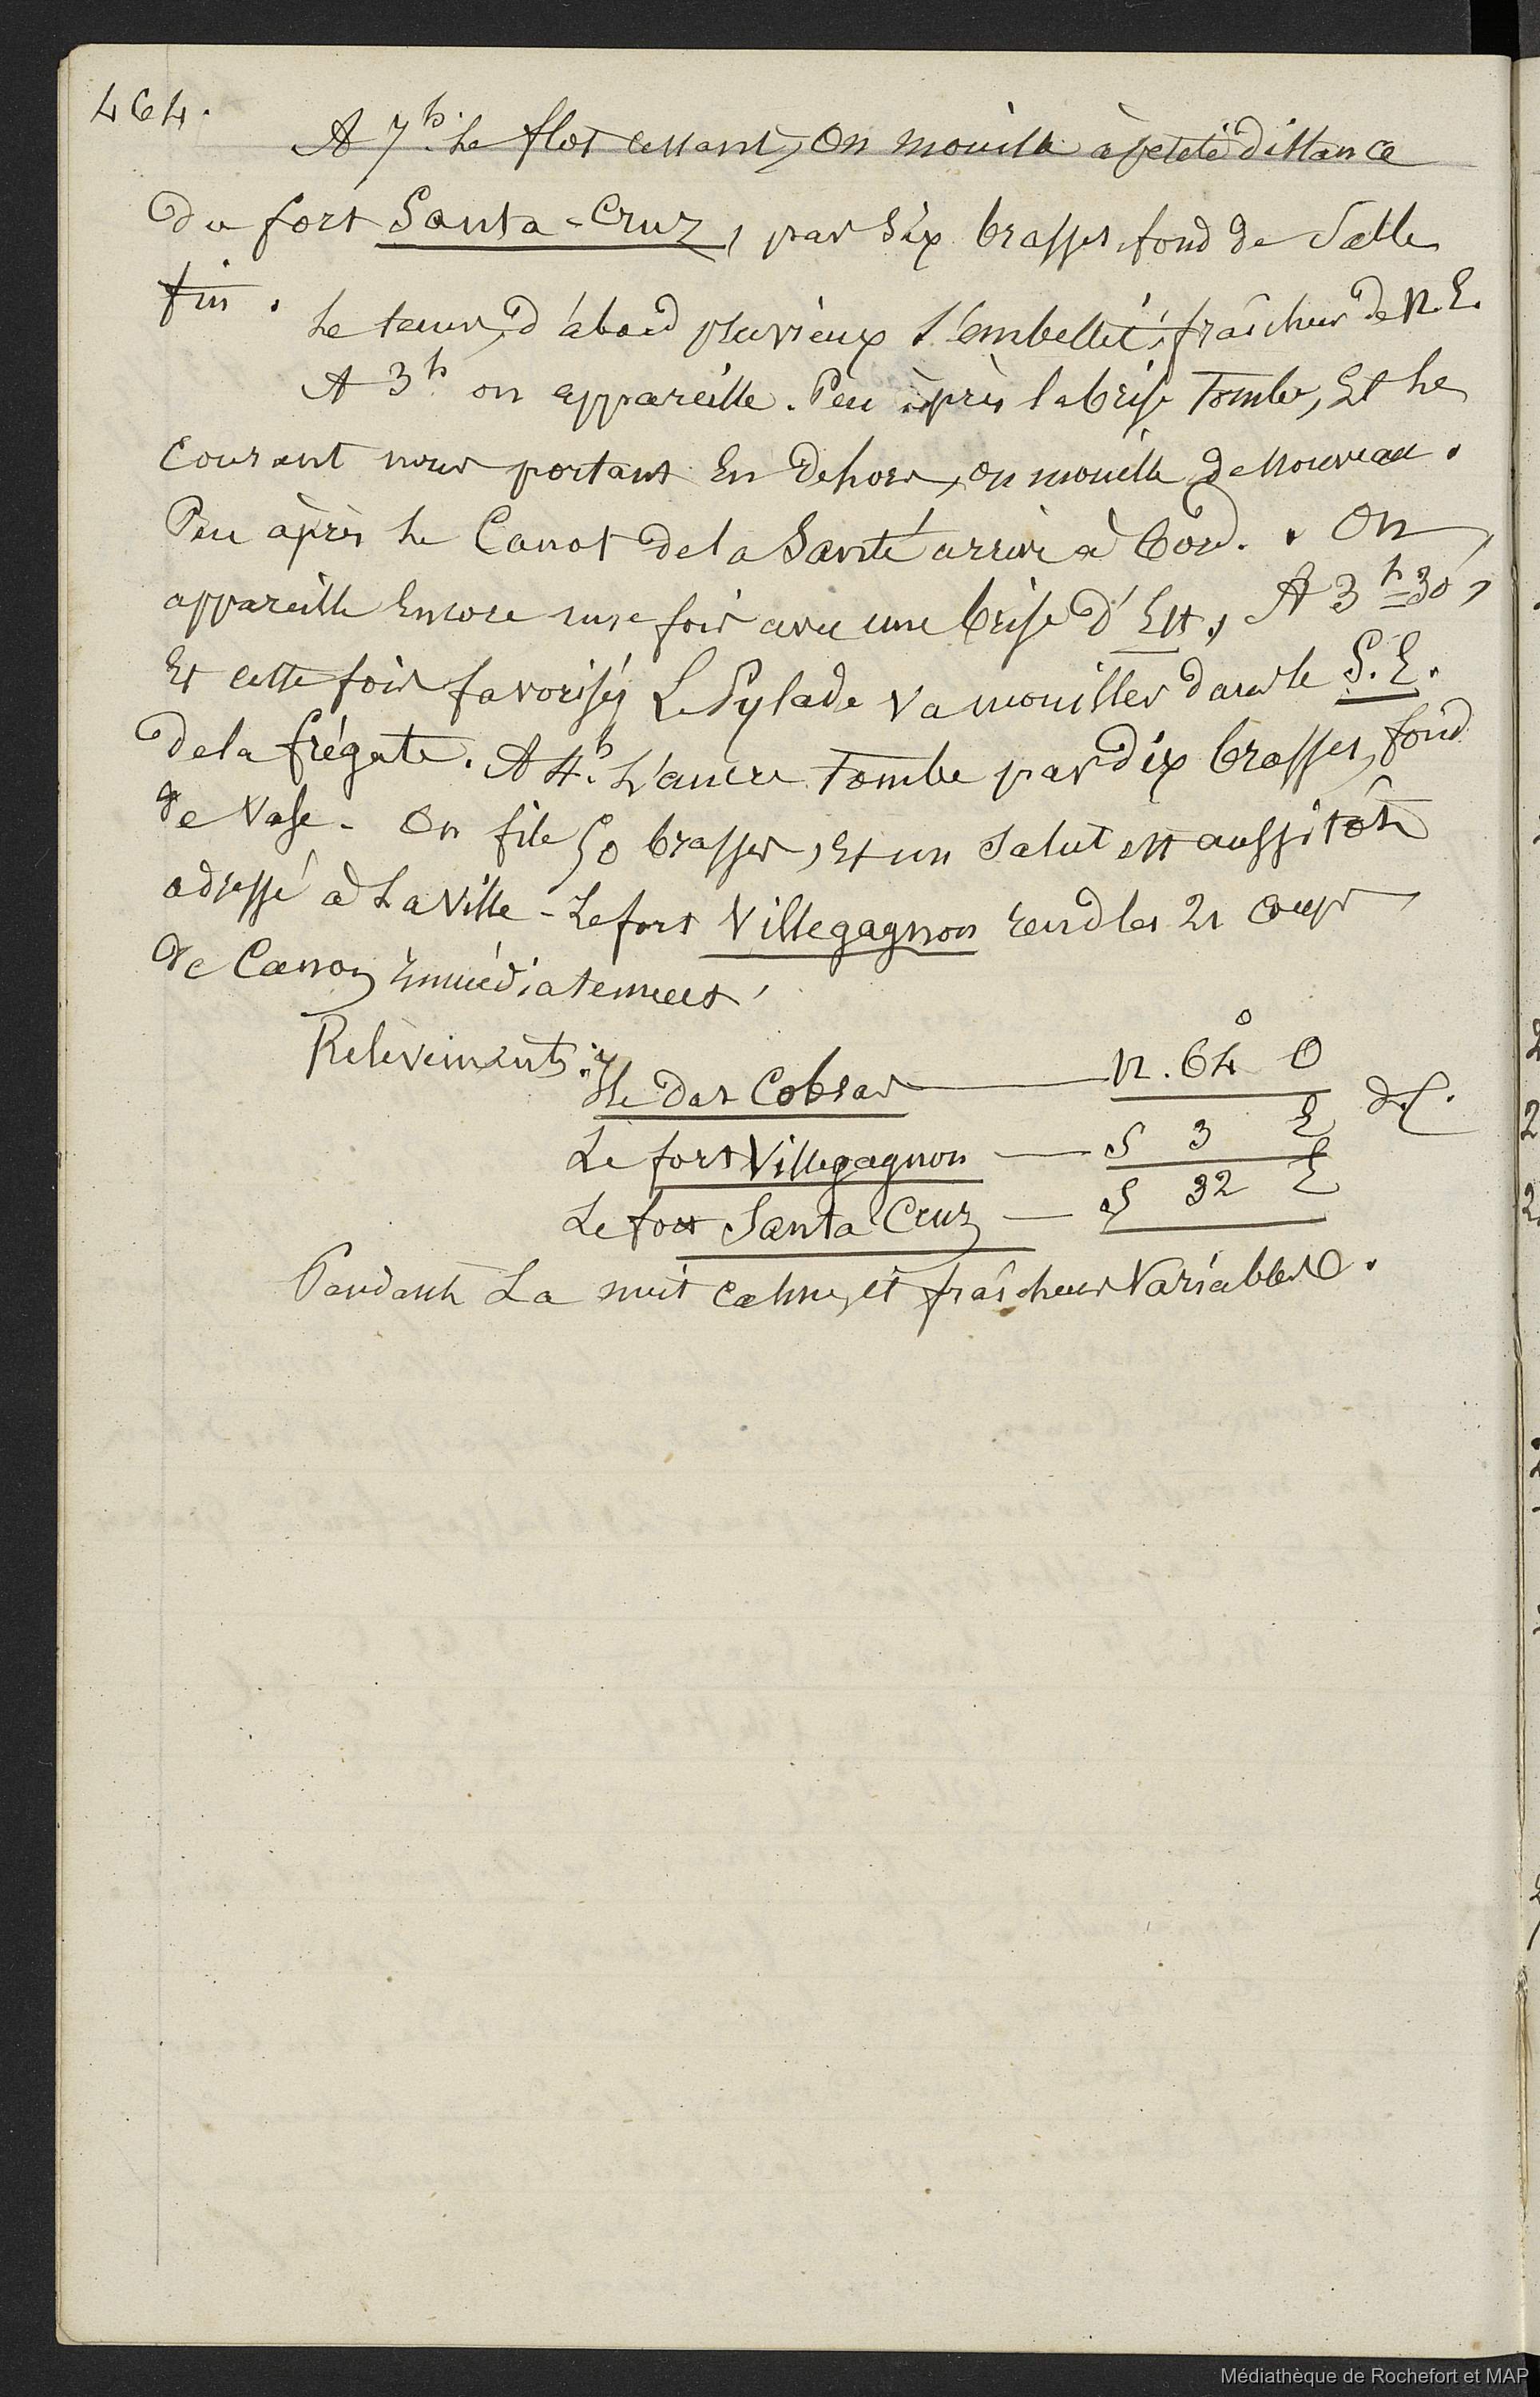 464.
A 7h. Le flot cessant, On mouille à petite distance
du fort Santa-Cruz, par six brasses, fond de Sable
fin.
Le tems, d'abord pluvieux s'embellit, fraîcheur de N.E.
A 3h on appareille. Peu àprès la brise tombe, Et Le
Courant nous portant En dehors, on mouille de nouveau.
Peu àprès Le Canot de la Santé arrive à bord. On
appareille Encore une fois avec une brise d'Est, A 3h 30',
Et cette fois favorisés Le Pylade va mouiller dans le S.E.
de la frégate. A 4h. L'ancre tombe par dix brasses, fond
de Vase - On file 50 brasses, Et un Salut est aussitôt
adressé à La Ville - Le fort Villegagnon rend les 21 coups
de Canon immédiatement.
Relèvements :
Ile das Cobras — N. 64° O
Le fort Villegagnon — S 3 E
Le fort Santa Cruz — S 32 E
Pendant La nuit calme, et fraîcheurs Variables.
Médiathèque de Rochefort et MAP